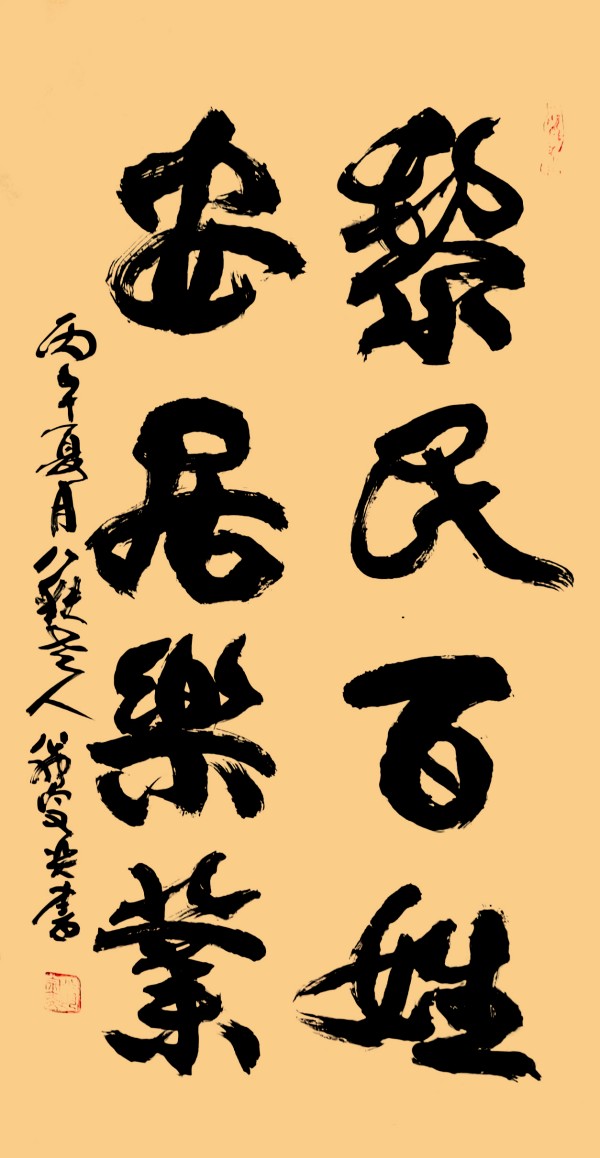 黎民百姓
安居樂業
丙午夏月 八艱老人 翁安央書